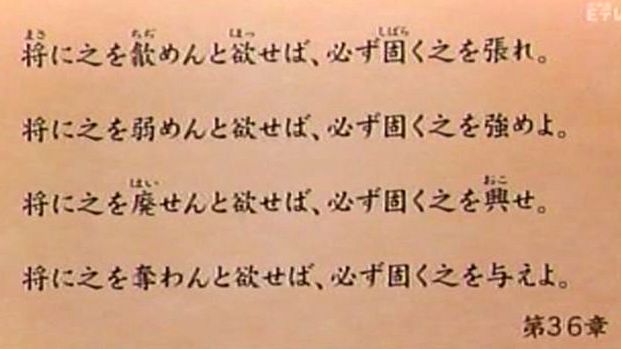 Eテレ
将に之を歙めんと欲せば、必ず固く之を張れ。
将に之を弱めんと欲せば、必ず固く之を強めよ。
将に之を廃せんと欲せば、必ず固く之を興せ。
将に之を奪わんと欲せば、必ず固く之を与えよ。
第36章